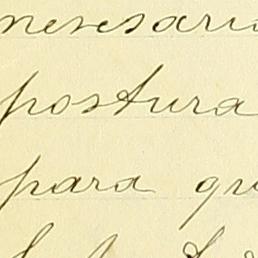 neresari
postura
para qu